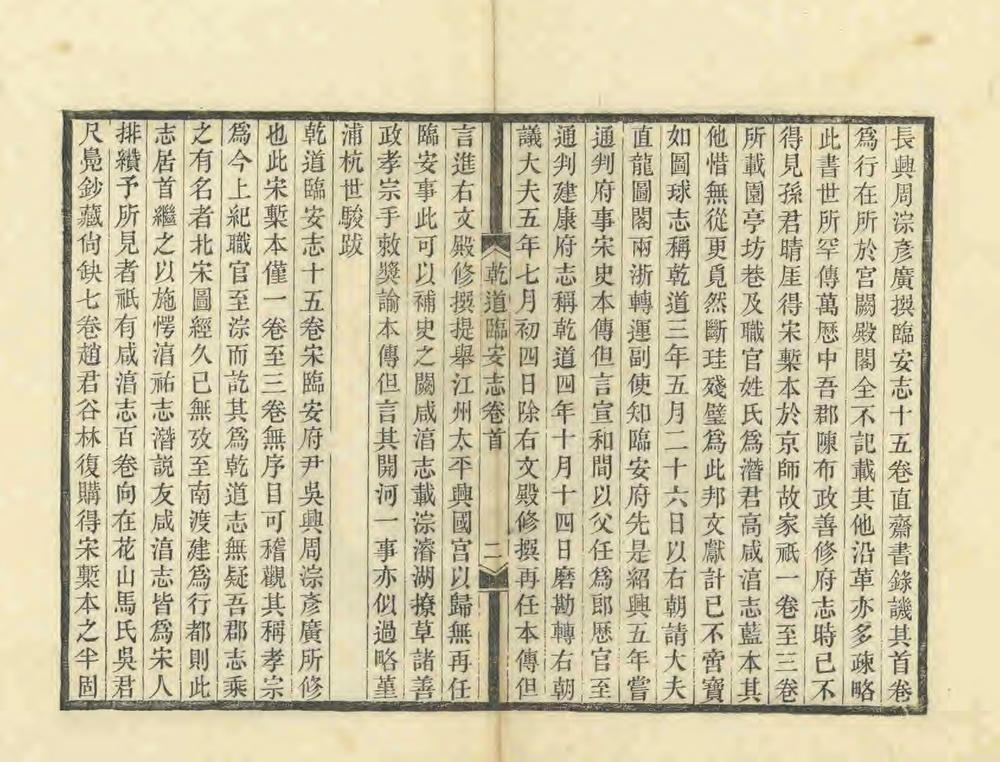 長興周淙彥廣撰臨安志十五卷直齋書錄譏其首卷
爲行在所於宮闕殿閣全不記載其他沿革亦多疎略
此書世所罕傳萬歷中吾郡陳布政善修府志時已不
得見孫君晴厓得宋槧本於京師故家祇一卷至三卷
所載園亭坊巷及職官姓氏爲潛君高咸淯志藍本其
他惜無從更覓然斷珪殘璧爲此邦文獻計已不啻寶
如圖球志稱乾道三年五月二十六日以右朝請大夫
直龍圖閣兩浙轉運副使知臨安府先是紹興五年嘗
通判府事宋史本傳但言宣和間以父任爲郎歷官至
通判建康府志稱乾道四年十月十四日磨勘轉右朝
議大夫五年七月初四日除右文殿修撰再任本傳但
乾道臨安志卷首
二
言進右文殿修撰提舉江州太平興國宮以歸無再任
臨安事此可以補史之闕咸淯志載淙濬湖撩草諸善
政孝宗手敕獎諭本傳但言其開河一事亦似過略堇
浦杭世駿跋
乾道臨安志十五卷宋臨安府尹吳興周淙彥廣所修
也此宋槧本僅一卷至三卷無序目可稽觀其稱孝宗
爲今上紀職官至淙而訖其爲乾道志無疑吾郡志乘
之有名者北宋圖經久已無攷至南渡建爲行都則此
志居首繼之以施愕淯祐志潛說友咸淯志皆爲宋人
排纘予所見者祇有咸淯志百卷向在花山馬氏吳君
尺鳧鈔藏尙缺七卷趙君谷林復購得宋槧本之半固